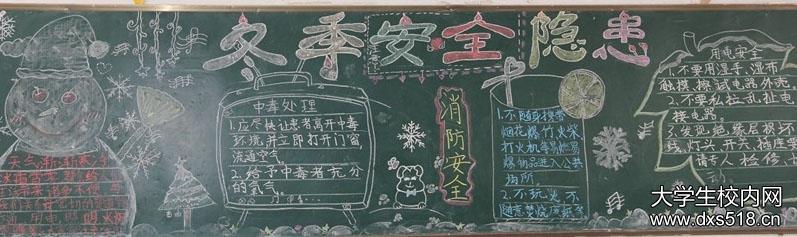 冬季安全隐患
中毒处理
1.应尽快让患者离开中毒
环境并立即打开门窗
流通空气
2.给予中毒者充分
的氧气。
消防安全
1.不随身携带
烟花爆竹火柴
打火机等易燃易
爆物品进入公共
场所
2.不玩火不
随意焚烧废纸等
用电安全
1.不要用湿手、湿布
触摸、擦试电器外壳。
2.不要私拉乱扯电
接电器。
3.发现绝缘层损坏
线、灯头、开关、插座要
请专人检修,
天气
大学生校内网
www.dxs518.cn